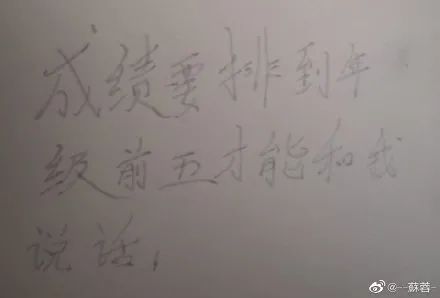 成绩要排到年
级前五才能和我
说话,
@--蘇蓉-